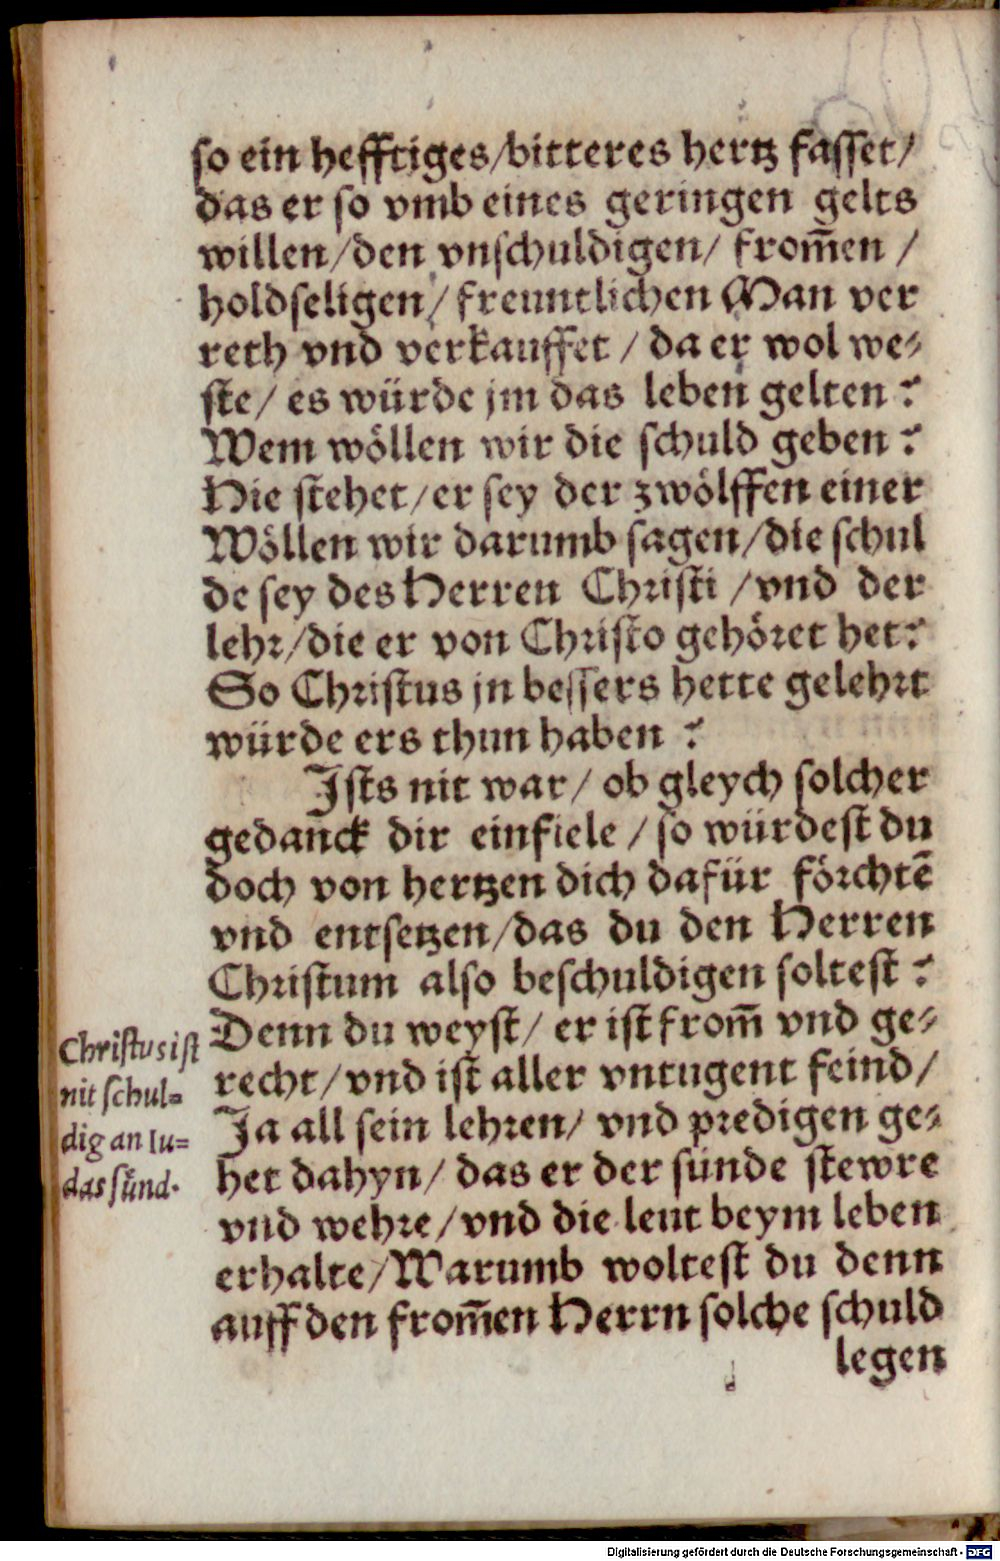 so ein hefftiges/bitteres hertz fasset/
das er so vmb eines geringen gelts
willen/den vnschuldigen/ from̄en /
holdseligen/ freuntlichen Man ver
reth vnd verkauffet / da er wol we⸗
ste/ es würde jm das leben gelten?
Wem wöllen wir die schuld geben?
Hie stehet/er sey der zwölffen einer
Wöllen wir darumb sagen/die schul
de sey des Herren Christi /vnd der
lehr/die er von Christo gehöret het?
So Christus jn bessers hette gelehrt
würde ers thun haben ?
Ists nit war/ ob gleych solcher
gedanck dir einfiele / so würdest du
doch von hertzen dich dafür förchtē
vnd entsetzen/das du den Herren
Christum also beschuldigen soltest?
Denn du weyst/ er ist from̄ vnd ge⸗
recht/vnd ist aller vntugent feind/
Ja all sein lehren/ vnd predigen ge⸗
het dahyn/ das er der sünde stewre
vnd wehre/vnd die leut beym leben
erhalte/Warumb woltest du denn
auff den from̄en Herrn solche schuld
legen
Christus ist
nit schul=
dig an Iu=
das sünd.
Digitalisierung gefördert durch die Deutsche Forschungsgemeinschaft - DFG